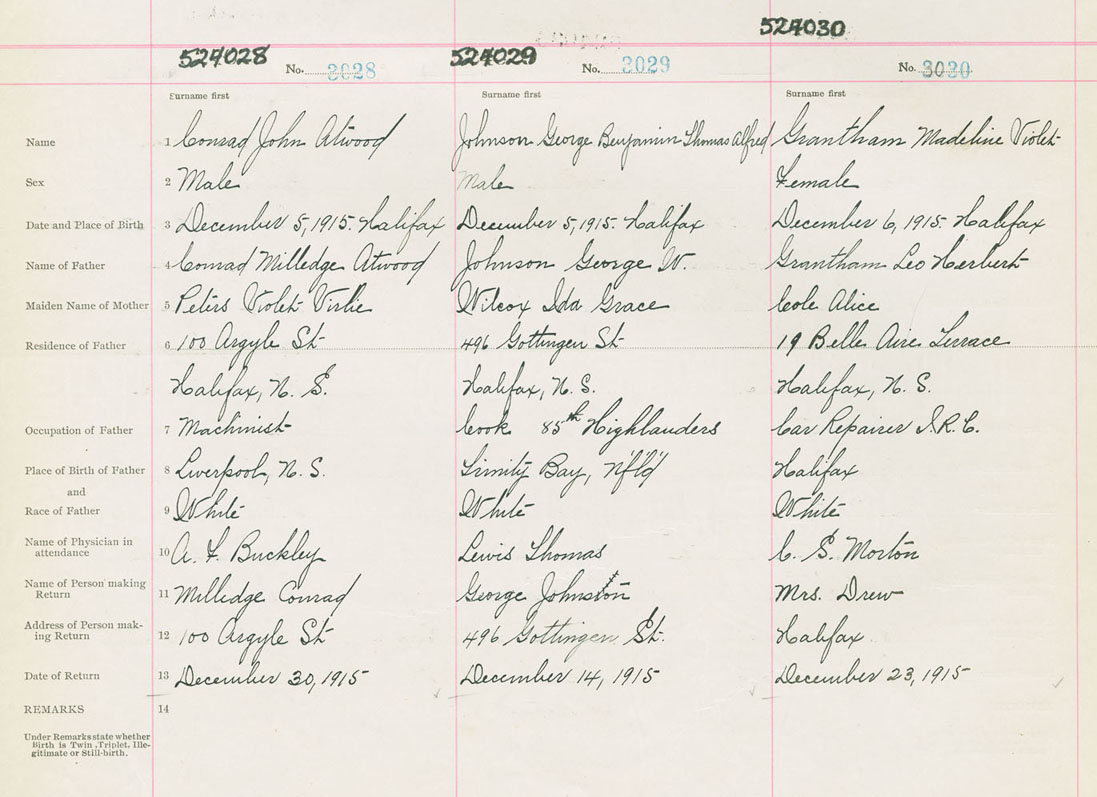 524028 524029 524030
No. 3028 No. 3029 No. 3030
Surname first Surname first Surname first
Name 1 Conrad John Atwood Johnson George Benjamin Thomas Alfred Grantham Madeline Violet
Sex 2 Male Male Female
Date and Place of Birth 3 December 5, 1915. Halifax December 5, 1915. Halifax December 6, 1915. Halifax
Name of Father 4 Conrad Milledge Atwood Johnson George W. Grantham Leo Herbert
Maiden Name of Mother 5 Peters Violet Virlie Wilcox Ida Grace Cole Alice
Residence of Father 6 100 Argyle St 496 Gottingen St 19 Belle Aire Terrace
Halifax, N. S. Halifax, N. S. Halifax, N. S.
Occupation of Father 7 Machinist Cook 85th Highlanders Car Repairer I.R.C.
Place of Birth of Father 8 Liverpool, N. S. Trinity Bay, Nfld Halifax
and
Race of Father 9 White White White
Name of Physician in attendance 10 A. F. Buckley Lewis Thomas C. S. Morton
Name of Person making Return 11 Milledge Conrad George Johnston Mrs. Drew
Address of Person making Return 12 100 Argyle St 496 Gottingen St. Halifax
Date of Return 13 December 30, 1915 December 14, 1915 December 23, 1915
REMARKS 14
Under Remarks state whether
Birth is Twin, Triplet, Ille-
gitimate or Still-birth.